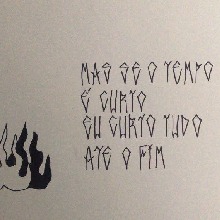 MAS SE O TEMPO
É CURTO
EU CURTO TUDO
ATÉ O FIM